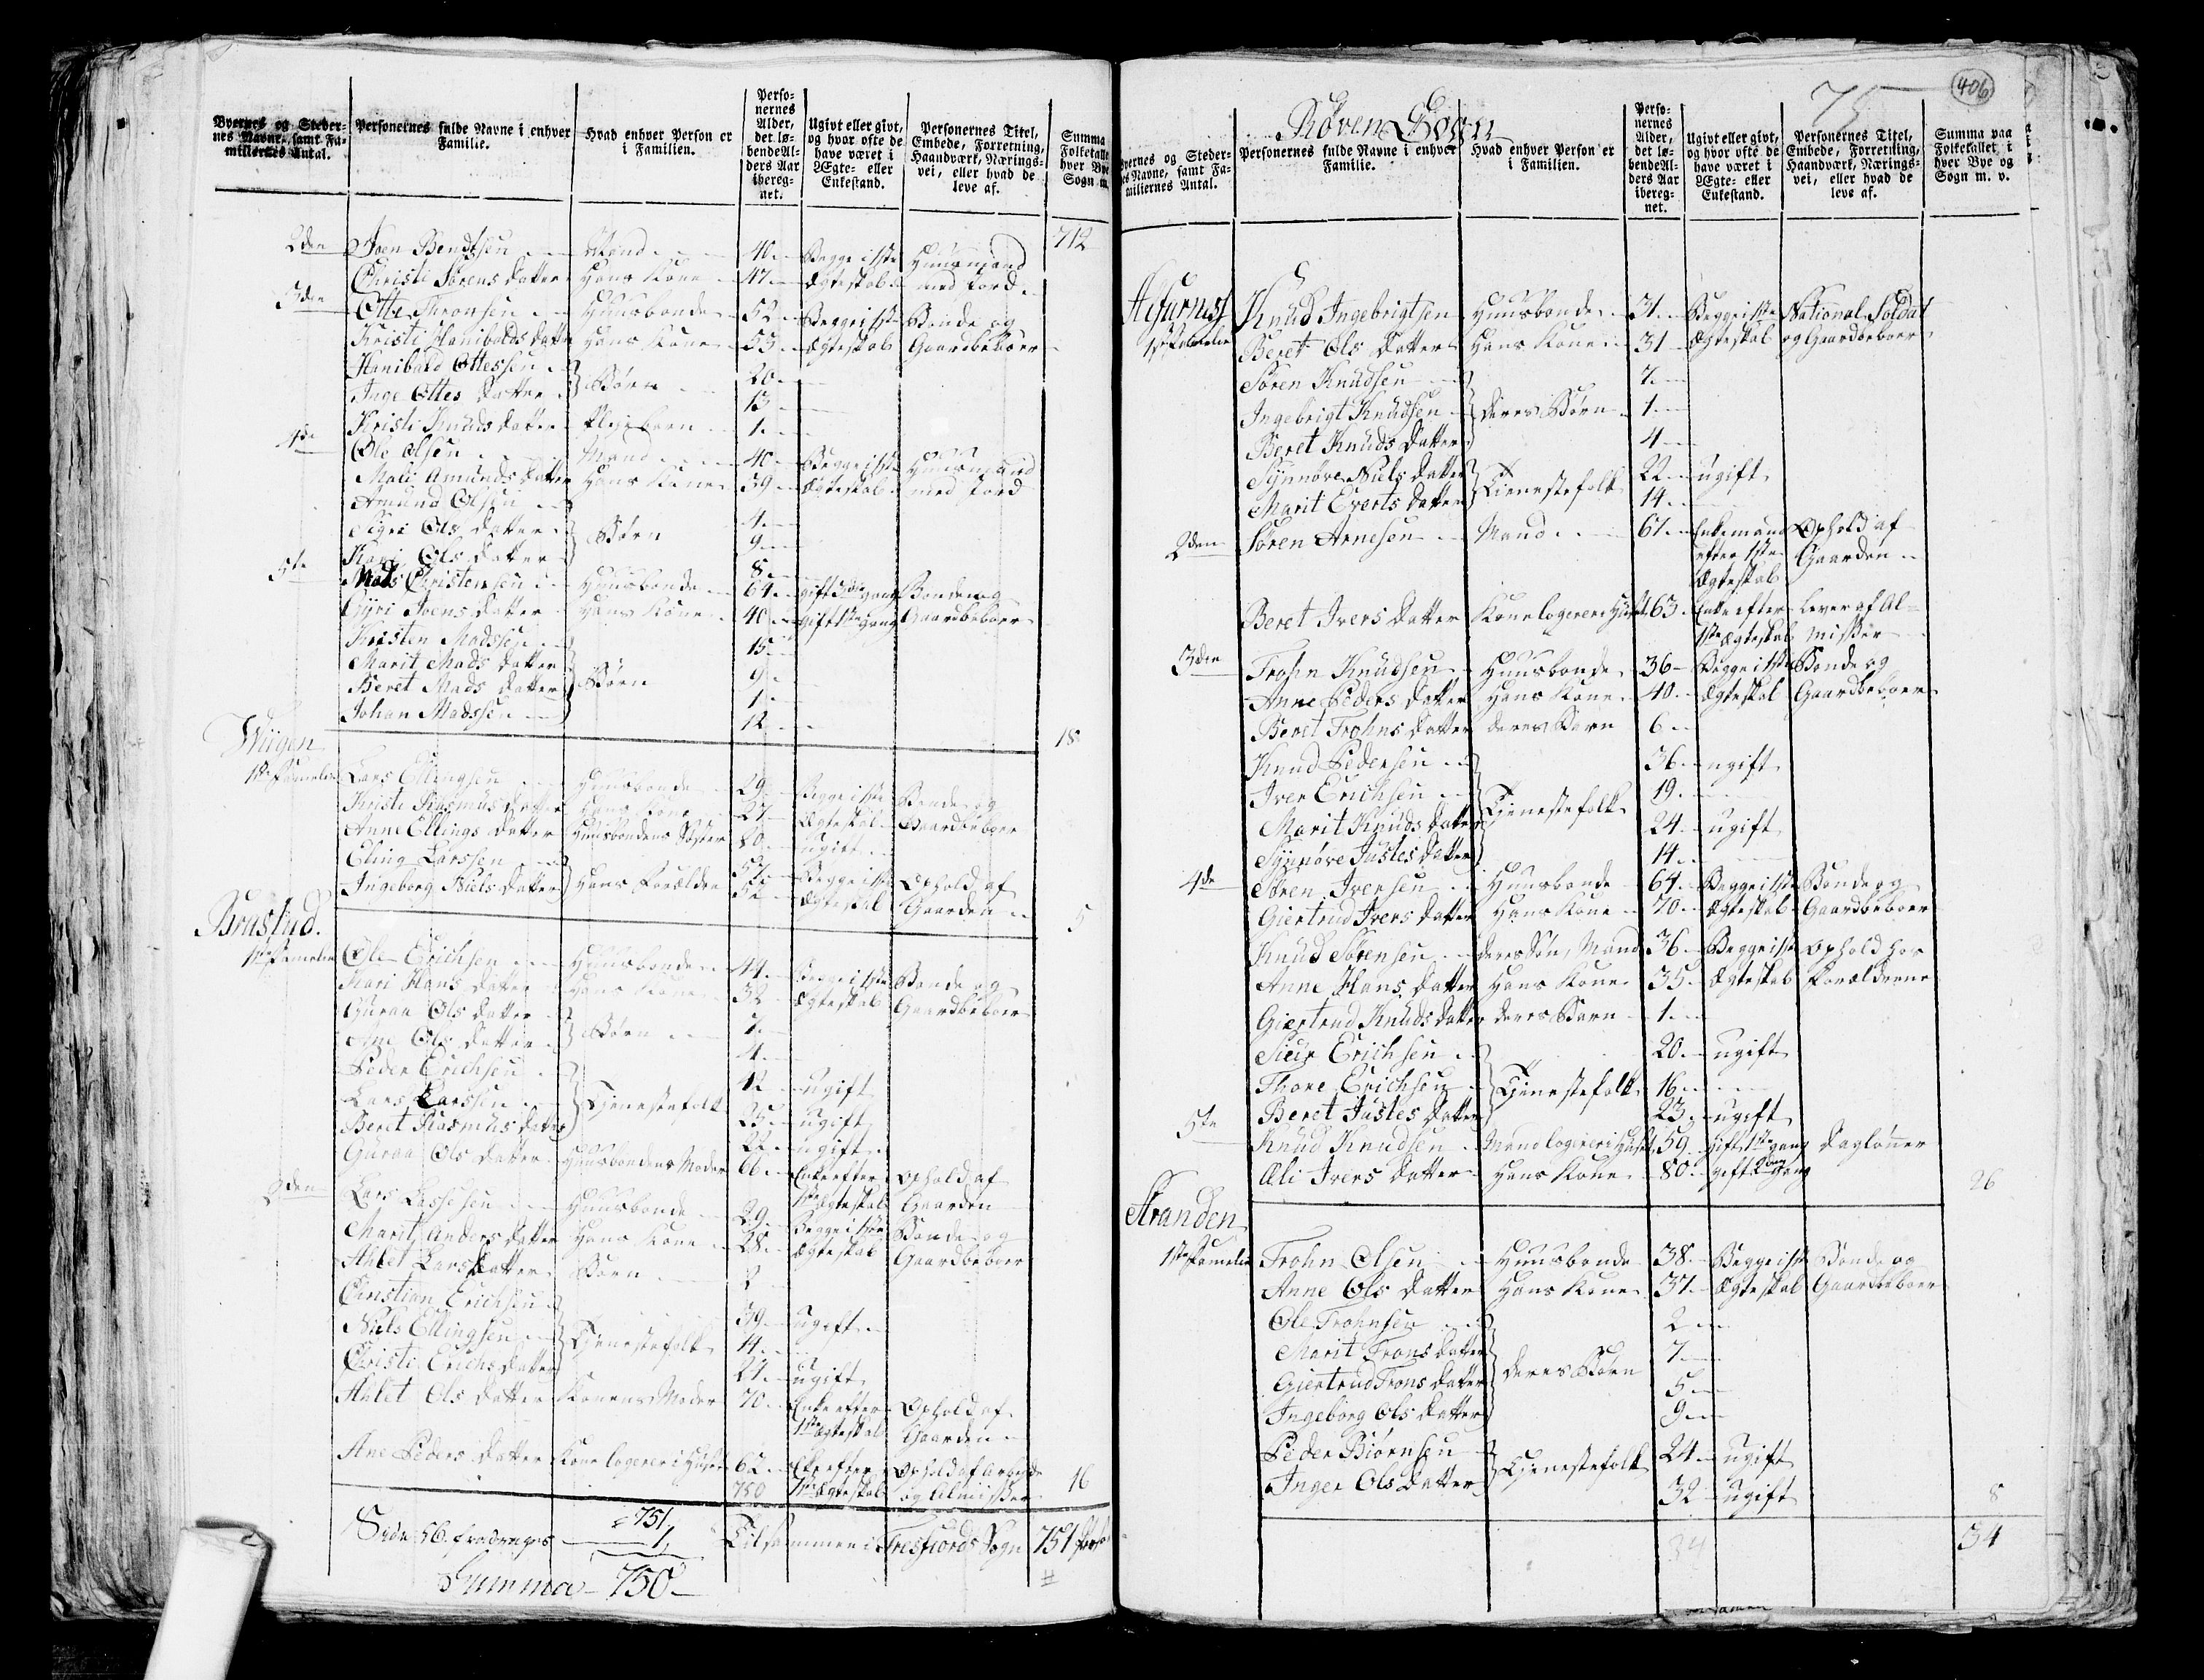 Byernes og Steder-
nes Navne, samt Fa-
miliernes Antal.
Personernes fulde Navne i enhver
Familie.
Hvad enhver Person er
i Familien.
Perso-
nernes
Alder,
det lø-
bende Al-
ders Aar
ibereg-
net.
Ugivt eller givt,
og hvor ofte de
have været i
Ægte- eller
Enkestand.
Personernes Titel,
Embede, Forretning,
Haandværk, Nærings-
vei, eller hvad de
leve af.
Summa
Folketallet
hver Bye
Sogn m.
712
2den Joen Bendtsen Mand 40 Begge i 1ste Huusmand
Christi Sørens Datter Hans Kone 47 Ægteskab med Jord
3den Otte Thronsen Huusbonde 52 Begge i 1ste Bonde og
Kristi Hanibalds Datter Hans Kone 53 Ægteskab Gaardbeboer
Hanibald Ottessen Børn 20
Inge Ottes Datter 13
Kristi Knuds Datter Plejebarn 1
4de Ole Olsen Mand 40 Begge i 1ste Huusmand
Mali Amunds Datter Hans Kone 39 Ægteskab med Jord
Amund Olsen 4
Sigri Ols Datter Børn 9
Kari Ols Datter 8
5te Mads Christensen Huusbonde 64 gift 3die gang Bonde og
Gyri Joens Datter Hans Kone 40 gift 1ste gang Gaardbeboer
Kristen Madssen 15
Marit Mads Datter Børn 9
Beret Mads Datter 1
Johan Madssen 12
18
Wiigen
1ste Familie Lars Ellingsen Huusbonde 29 Begge i 1ste Bonde og
Kristi Rasmus Datter Hans Kone 27 Ægteskab Gaardbeboer
Anne Ellings Datter Huusbondens Søster 80 ugift
Eling Larssen Hans Forældre 57 Begge i 1ste Ophold af
Ingeborg Niels Datter 52 Ægteskab Gaarden
5
Brastad.
1ste Familie Ole Erichsen Huusbonde 44 Begge i 1ste Bonde og
Kari Hans Datter Hans Kone 32 Ægteskab Gaardbeboer
Guraa Ols Datter Børn 7
Ane Ols Datter 4
Peder Erichsen 42 ugift
Lars Larssen Tjenestefolk 25 ugift
Beret Rasmus Datter 22 ugift
Guraa Ols Datter Huusbondens Moder 66 Enke efter Ophold af
1ste Ægteskab Gaarden
2den Lars Lassesen Huusbonde 29 Begge i 1ste Bonde og
Marit Anders Datter Hans Kone 28 Ægteskab Gaardbeboer
Ahlet Lars Datter Børn 2
Christian Erichsen 39 ugift
Niels Ellingsen Tjenestefolk 14
Christi Erichs Datter 24 ugift
Ahlet Ols Datter Konens Moder 70 Enke efter Ophold af
1ste Ægteskab Gaarden
Ane Peders Datter Kone logerer i Huset 62 Enke efter Ophold af Arbejde
750 1ste Ægteskab og Almisser
16
751
Side 56 fradrages 1
Summa 750
Tilsammen i Tresfiords Sogn 751
#
Røven Sogn
75
406
Byernes og Steder-
nes Navne, samt Fa-
miliernes Antal.
Personernes fulde Navne i enhver
Familie.
Hvad enhver Person er
i Familien.
Perso-
nernes
Alder,
det lø-
bende Al-
ders Aar
ibereg-
net.
Ugivt eller givt,
og hvor ofte de
have været i
Ægte- eller
Enkestand.
Personernes Titel,
Embede, Forretning,
Haandværk, Nærings-
vei, eller hvad de
leve af.
Summa paa
Folketallet i
hver Bye og
Sogn m. v.
1ste Familie Knud Ingebrigtsen Huusbonde 31 Begge i 1ste National Soldat
Beret Ols Datter Hans Kone 31 Ægteskab og Gaardbeboer
Søren Knudsen 7
Ingebrigt Knudsen deres Børn 1
Beret Knuds Datter 4
Synnøve Niels Datter Tienestefolk 22 ugift
Marit Everts Datter 14
2den Søren Arnesen Mand 67 Enkemand Ophold af
efter 1ste Gaarden
Ægteskab
Beret Ivers Datter Kone logerer i Huset 63 Enke efter Lever af Al-
1ste Ægteskab misser
3den Trohn Knudsen Huusbonde 36 Begge i 1ste Bonde og
Anne Peders Datter Hans Kone 40 Ægteskab Gaardbeboer
Beret Trohns Datter deres Barn 6
Knud Pedersen 36 ugift
Iver Erichsen Tjenestefolk 19
Marit Knuds Datter 24 ugift
Synnøve Justes Datter 14
4de Søren Iversen Huusbonde 64 Begge i 1ste Bonde og
Giertrud Ivers Datter Hans Kone 70 Ægteskab Gaardbeboer
Knud Sørensen deres Søn, Mand 36 Begge i 1ste Ophold hos
Anne Hans Datter Hans Kone 35 Ægteskab Forældrene
Giertrud Knuds Datter deres Barn 1
Siur Erichsen 20 ugift
Thore Erichsen Tjenestefolk 16
Beret Justes Datter 23 ugift
5te Knud Knudsen Mand logerer i Huset 59 gift 1ste gang Dagløner
Æli Ivers Datter Hans Kone 80 gift 2den gang
26
Stranden
1ste Familie Trohn Olsen Huusbonde 38 Begge i 1ste Bonde og
Anne Ols Datter Hans Kone 37 Ægteskab Gaardbeboer
Ole Trohnsen 2
Marit Trons Datter deres Børn 7
Giertrud Trons Datter 5
Ingeborg Ols Datter 9
Peder Biørnsen Tjenestefolk 24 ugift
Inger Ols Datter 32 ugift
8
34
34